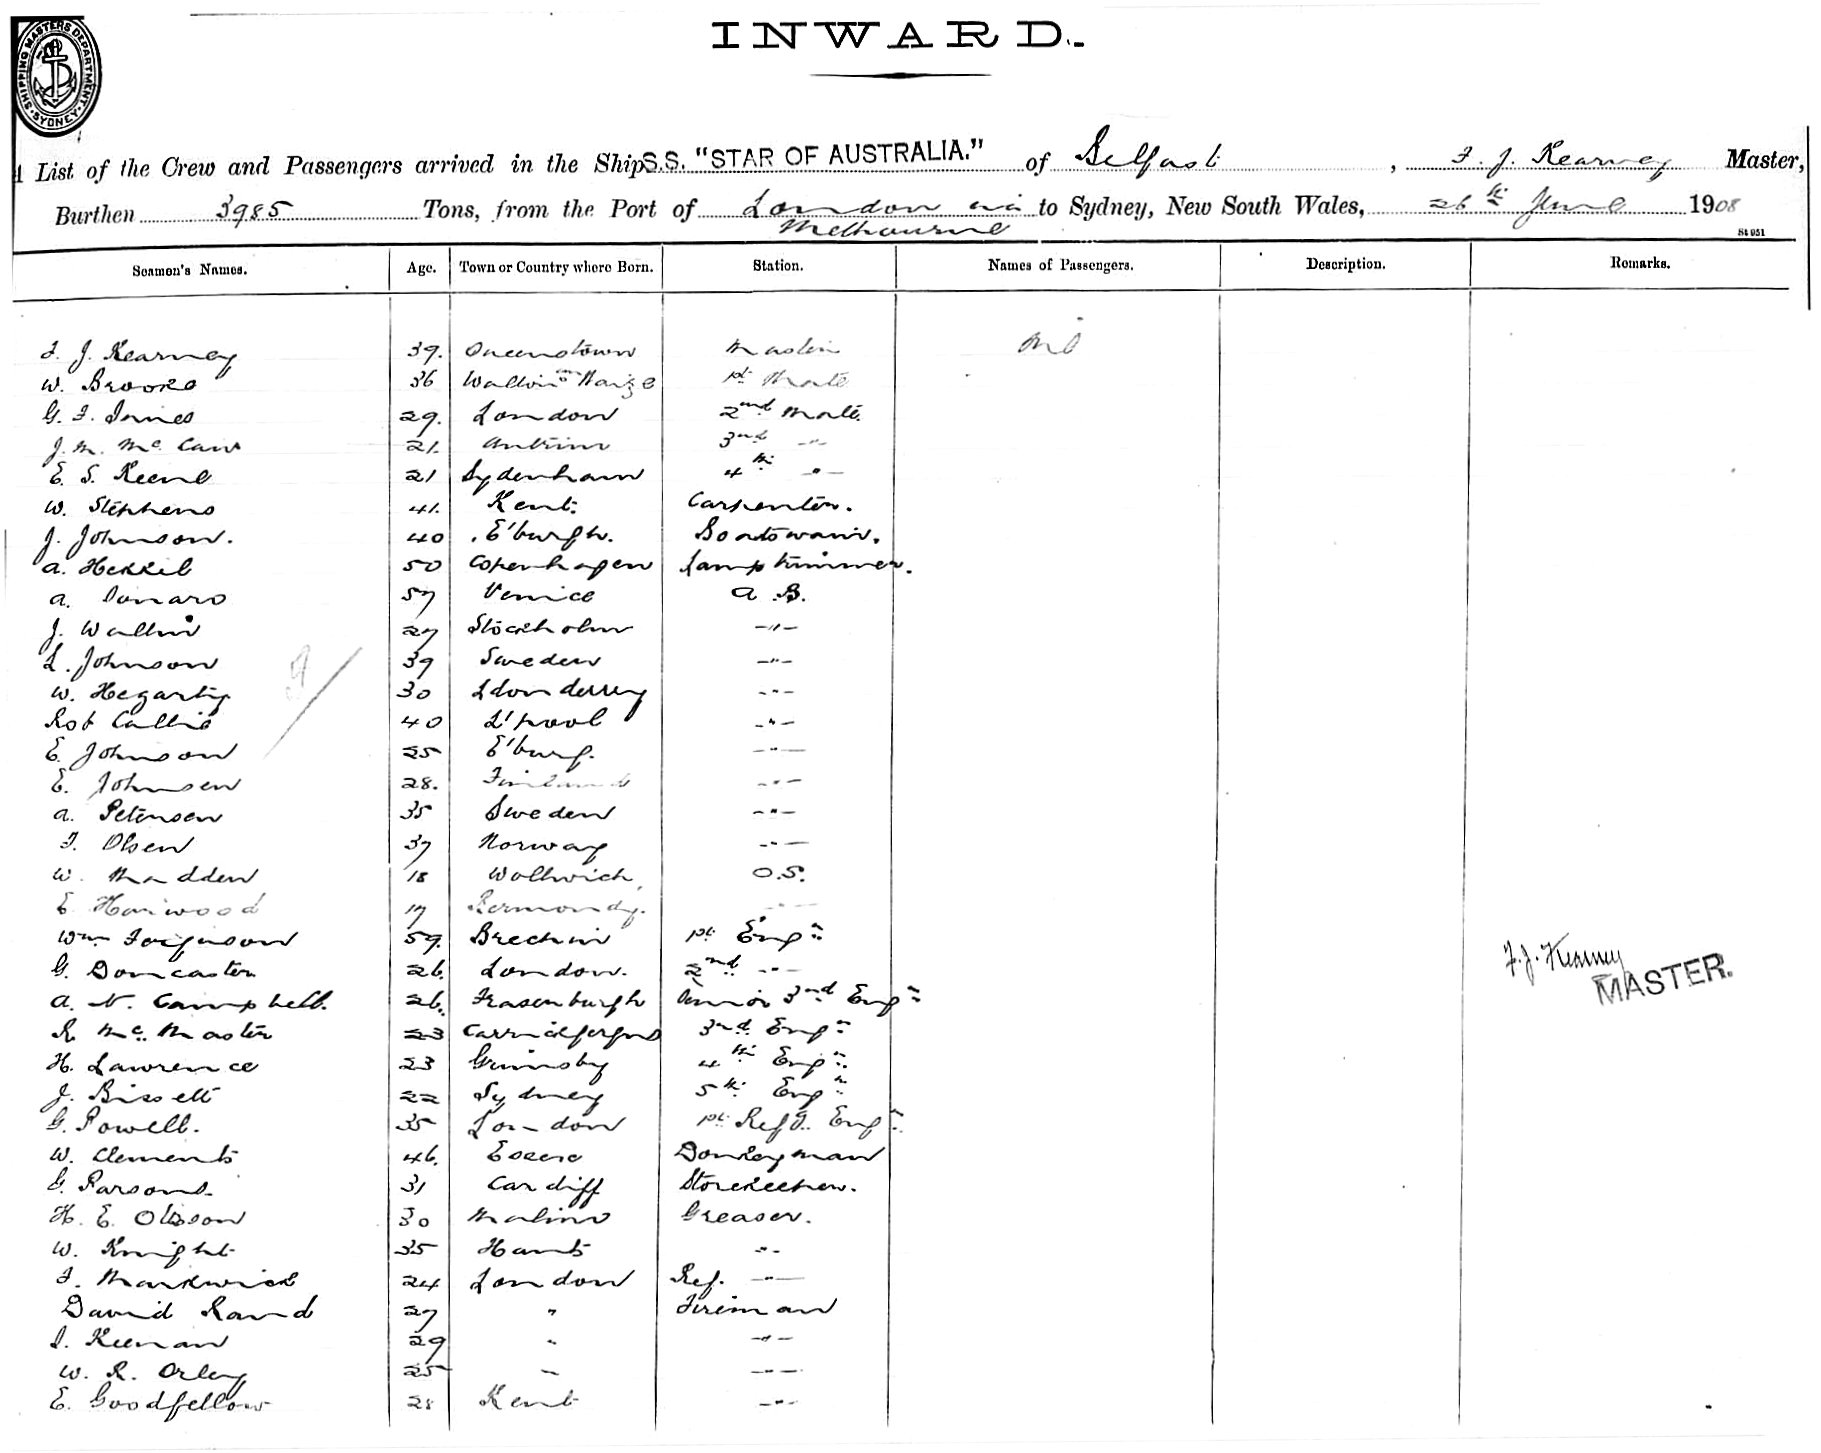 INWARD.
SHIPPING MASTERS DEPARTMENT SYDNEY
List of the Crew and Passengers arrived in the Ship S.S. "STAR OF AUSTRALIA." of Belfast, F. J. Kearney Master,
Burthen 3985 Tons, from the Port of London via Melbourne to Sydney, New South Wales, 26th June 1908
St 951
Seamen's Names. Age. Town or Country where Born. Station. Names of Passengers. Description. Remarks.
F. J. Kearney 39. Queenstown Master Nil
W. Brooks 36 1st Mate
G. F. Innes 29. London 2nd Mate.
J. M. Mc Caw 21. Antrim 3rd -"-
E. S. Keene 21 Sydenham 4th -"-
W. Stephens 41. Kent. Carpenter.
J. Johnson. 40 E'burgh. Boatswain.
A. Hekkil 50 Copenhagen Lamptrimmer.
A. 57 Venice A.B.
J. Wallin 27 Stockholm -"-
L. Johnson 39 Sweden -"-
W. Hegarty 30 Ldonderry -"-
Rob Callie 40 L'pool -"-
E. Johnson 25 E'burg. -"-
E. Johnsen 28. Finland -"-
A. Petersen 35 Sweden -"-
F. Olsen 37 Norway -"-
W. Madden 18 Wollwich O.S.
E. Harwood 17 Bermondy. -"-
Wm Ferguson 59. Brechin 1st Engr
G. Doncaster 26. London. 2nd -"-
A. V. Campbell. 26. Fraserburgh Senior 3rd Engr
R. Mc Master 23 Carrickfergus 3rd Engr
F. J. Kearney
MASTER.
H. Lawrence 23 Grimsby 4th Engr
J. Bissett 22 Sydney 5th Engr
G. Powell. 35 London 1st Refg. Engr
W. Clements 46. Essex Donkeyman
G. Parsons. 31 Cardiff Storekeeper.
H. E. Olsson 30 Malmo Greaser.
W. Knight 35 Hants -"-
F. Markwick 24 London Ref. -"-
David Rand 27 " Fireman
J. Keenan 29 " -"-
W. R. Orley 25 " -"-
E. Goodfellow 28 Kent -"-